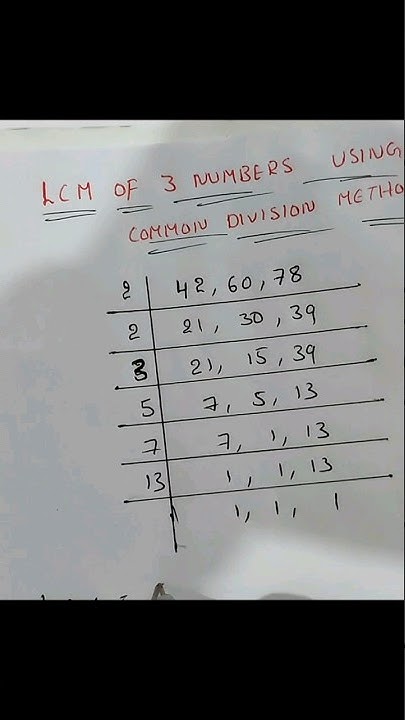 LCM OF 3 NUMBERS USING
COMMON DIVISION METHO
2 42, 60, 78
2 21, 30, 39
3 21, 15, 39
5 7, 5, 13
7 7, 1, 13
13 1, 1, 13
1, 1, 1